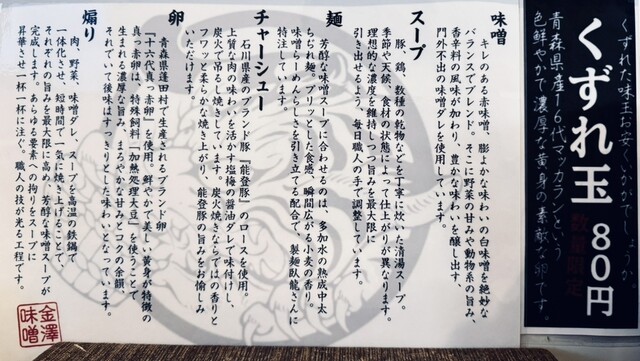 味噌
キレのある赤味噌、膨よかな味わいの白味噌を絶妙な
バランスでブレンド。そこに野菜の甘みや動物系の旨み、
香辛料の風味が加わり、豊かな味わいを醸し出す、
門外不出の味噌ダレを使用しています。
スープ
豚、鶏、数種の乾物などを丁寧に炊いた清湯スープ。
季節や天候、食材の状態によって仕上がりが異なります。
理想的な濃度を維持しつつ旨みを最大限に
引き出せるよう、毎日職人の手で調整しています。
麺
芳醇な味噌スープに合わせるのは、多加水の熟成中太
ちぢれ麺。プリッとした食感、瞬間広がる小麦の香り。
味噌らーめんらしさを引き立てる配合で、製麺臥龍さんに
特注しています。
チャーシュー
石川県産のブランド豚『能登豚』のロースを使用。
上質な肉の味わいを活かす塩梅の醤油ダレで味付けし、
炭火で吊るし焼きしています。炭火焼きならではの香りと
フワッと柔らかな焼き上がり、能登豚の旨みをお愉しみ
いただけます。
卵
青森県蓬田村で生産されるブランド卵
『十六代真っ赤卵』を使用。鮮やかで美しい黄身が特徴の
真っ赤卵は、特殊飼料「加熱処理大豆」を使うことで
生まれる濃厚な旨み、まろやかな甘みとコクの余韻、
それでいて後味はすっきりとした味わいとなっています。
煽り
肉、野菜、味噌ダレ、スープを高温の鉄鍋で
一体化させ、短時間で一気に焼き上げることで、
それぞれの旨みを最大限に高め、芳醇な味噌スープが
完成します。あらゆる要素への拘りをスープに
昇華させ一杯一杯に注ぐ。職人の技が光る工程です。
金澤
味噌
くずれた味玉お安くいかがでしょうか
青森県産16代マッカランという
色鮮やかで濃厚な黄身の素敵な卵です。
くずれ玉 80円
数量限定